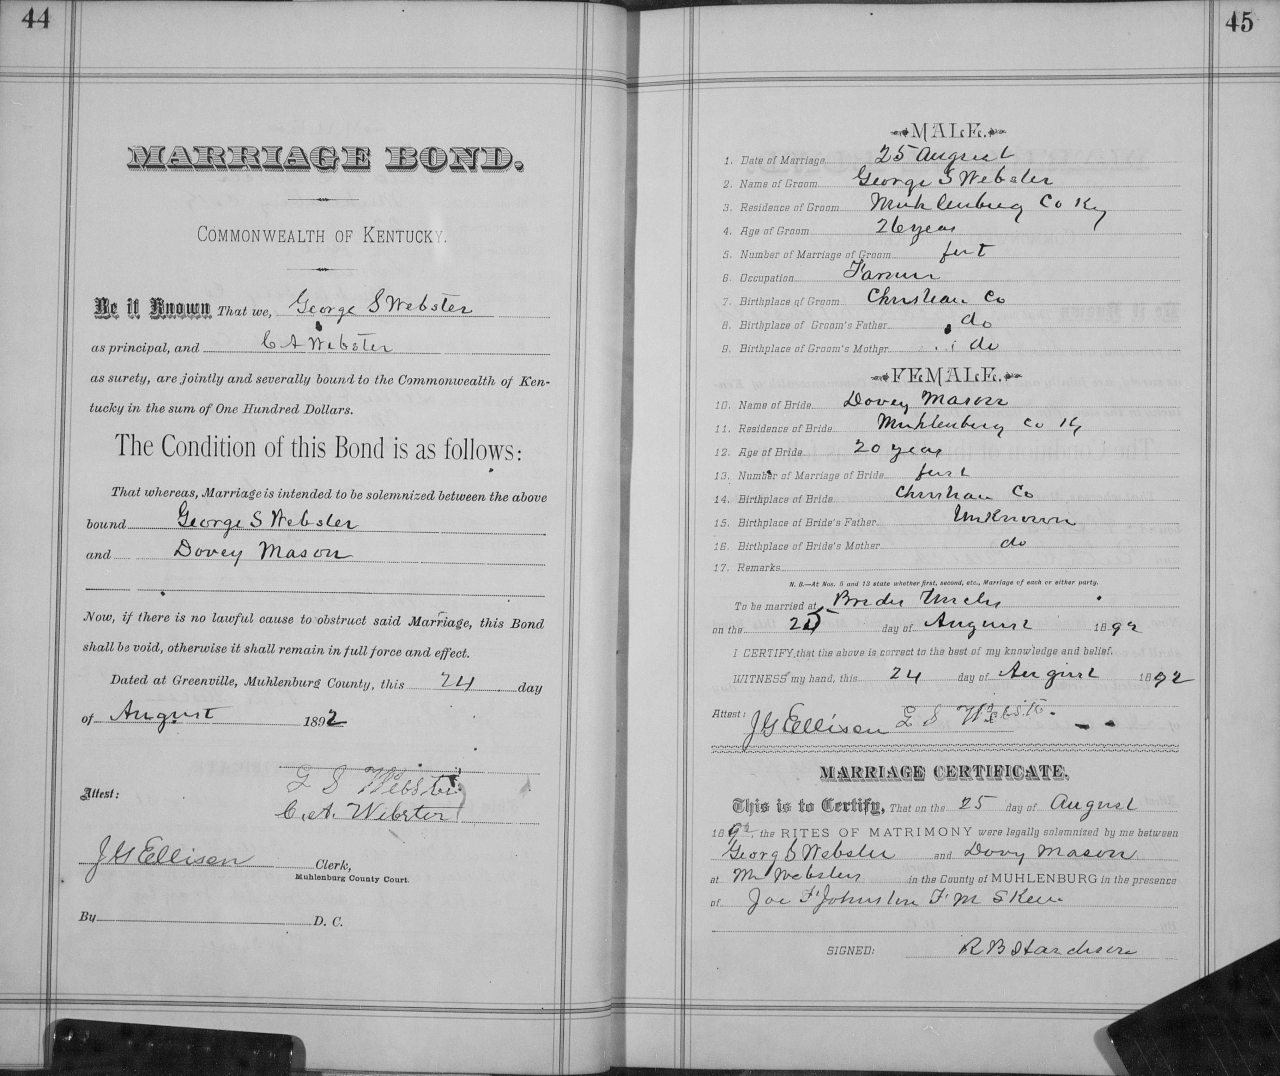 44
MARRIAGE BOND.
COMMONWEALTH OF KENTUCKY.
Be it Known That we, George S Webster
as principal, and C A Webster
as surety, are jointly and severally bound to the Commonwealth of Ken-
tucky in the sum of One Hundred Dollars.
The Condition of this Bond is as follows:
That whereas, Marriage is intended to be solemnized between the above
bound George S Webster
and Dovey Mason
Now, if there is no lawful cause to obstruct said Marriage, this Bond
shall be void, otherwise it shall remain in full force and effect.
Dated at Greenville, Muhlenburg County, this 24 day
of August 1892
G S Webster
Attest:
C. A. Webster
J G Ellison Clerk,
Muhlenburg County Court.
By D. C.
45
MALE.
1. Date of Marriage 25 August
2. Name of Groom George S Webster
3. Residence of Groom Muhlenburg Co Ky
4. Age of Groom 26 years
5. Number of Marriage of Groom first
6. Occupation Farmer
7. Birthplace of Groom Christian Co
8. Birthplace of Groom's Father do
9. Birthplace of Groom's Mother do
FEMALE.
10. Name of Bride Dovey Mason
11. Residence of Bride Muhlenburg Co Ky
12. Age of Bride 20 years
13. Number of Marriage of Bride first
14. Birthplace of Bride Christian Co
15. Birthplace of Bride's Father Unknown
16. Birthplace of Bride's Mother do
17. Remarks
N. B.—At Nos. 5 and 13 state whether first, second, etc., Marriage of each or either party.
To be married at Brides Uncles
on the 25 day of August 1892
I CERTIFY, that the above is correct to the best of my knowledge and belief.
WITNESS my hand, this 24 day of August 1892
Attest: J G Ellison G S Webster
MARRIAGE CERTIFICATE.
This is to Certify, That on the 25 day of August
1892, the RITES OF MATRIMONY were legally solemnized by me between
Georg S Webster and Dovy Mason
at Mr Websters in the County of MUHLENBURG in the presence
of Joe F Johnston F M
SIGNED: R B